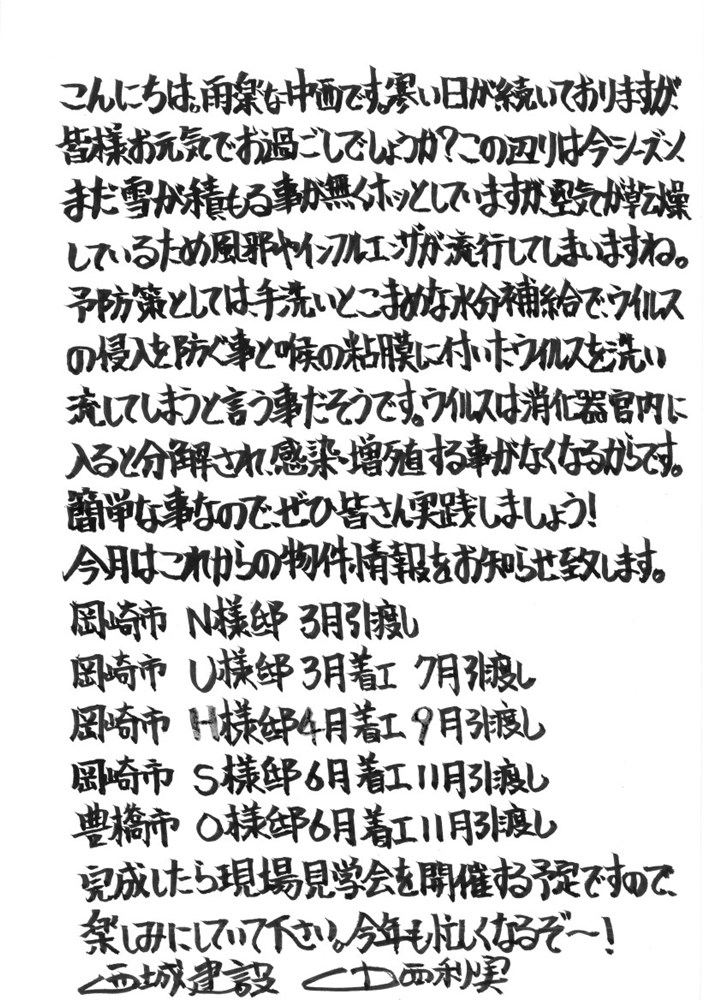 こんにちは。雨楽な中西です。寒い日が続いておりますが、
皆様お元気でお過ごしでしょうか?この辺りは今シーズン、
まだ雪が積もる事が無くホッとしていますが、空気が乾燥
しているため風邪やインフルエンザが流行してしまいますね。
予防策としては、手洗いとこまめな水分補給で、ウイルス
の侵入を防ぐ事と喉の粘膜に付いたウイルスを洗い
流してしまうと言う事だそうです。ウイルスは消化器官内に
入ると分解され、感染・増殖する事がなくなるからです。
簡単な事なので、ぜひ皆さん実践しましょう!
今月はこれからの物件情報をお知らせ致します。
岡崎市 N様邸 3月引渡し
岡崎市 U様邸 3月着工 7月引渡し
岡崎市 H様邸 4月着工 9月引渡し
岡崎市 S様邸 6月着工 11月引渡し
豊橋市 O様邸 6月着工 11月引渡し
完成したら現場見学会を開催する予定ですので、
楽しみにしていて下さい。今年も忙しくなるぞ〜!
西城建設 中西利実